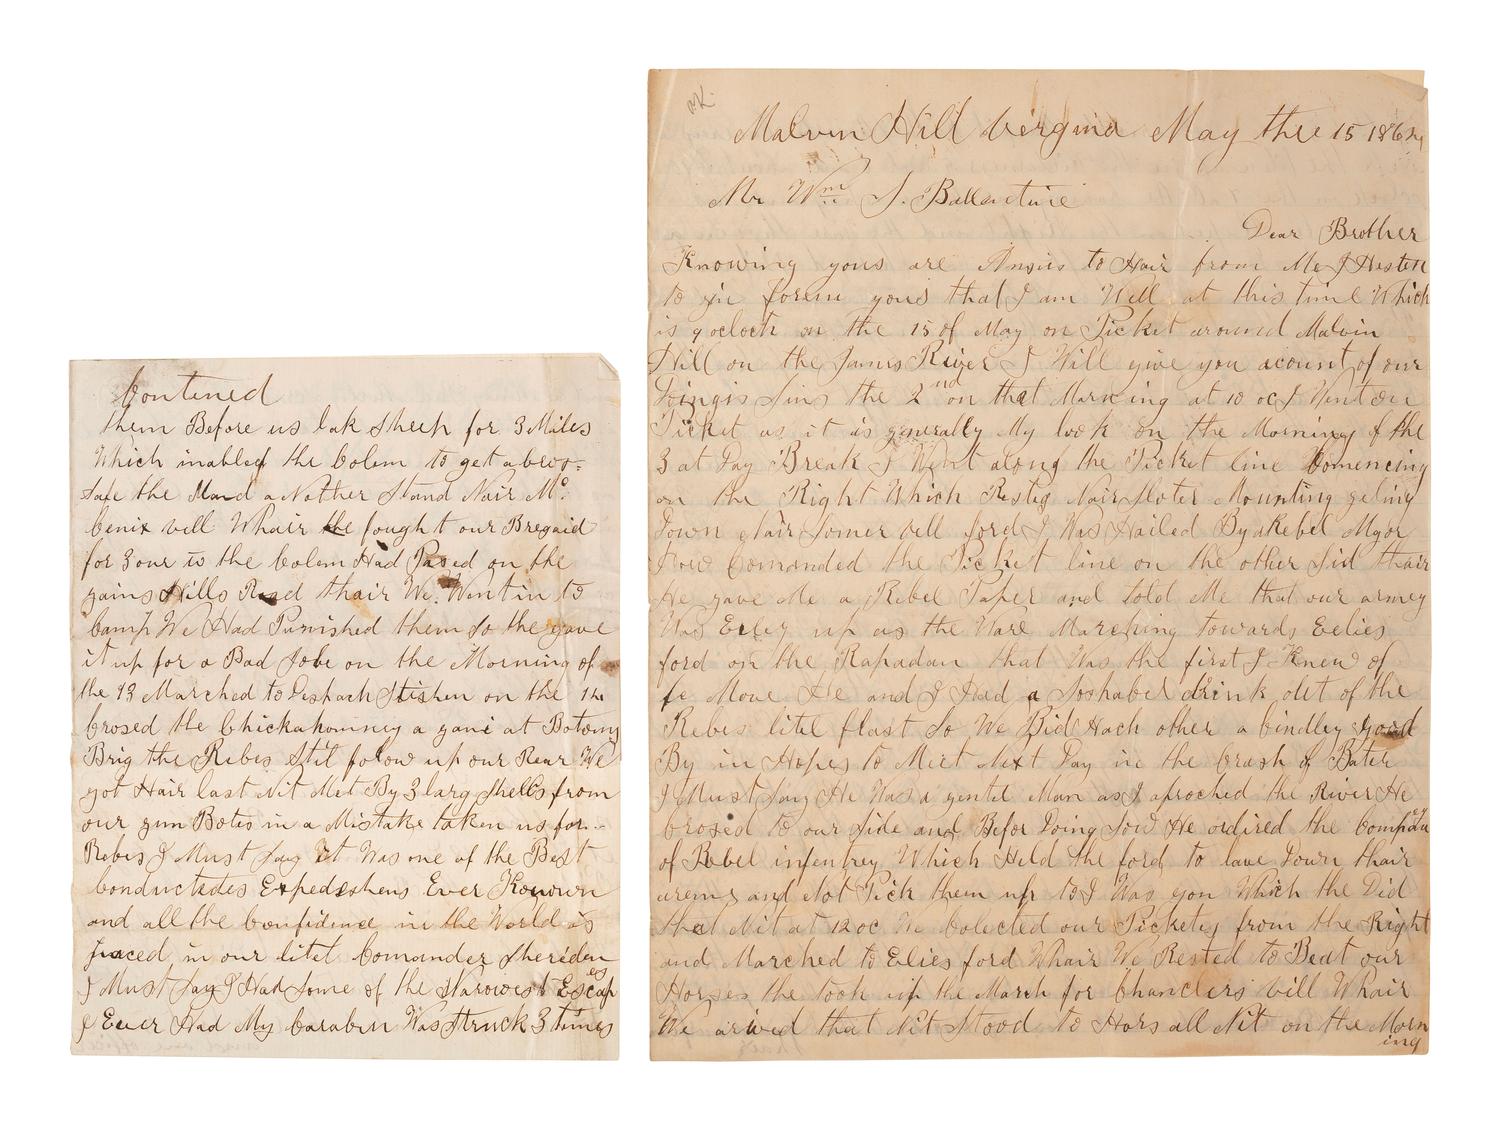 Malvin Hill Verginia May the 15 1864
Mr Wm S. Ballentine
Dear Brother
Knowing yous are Ansius to Hair from Me I Hasten
to in forem yous that I am Well at this time Which
is 9 oclock on the 15 of May on Picket around Malvin
Hill on the James River I Will give you acount of our
Doingis Sins the 2nd on that Morning at 10 oc I Went on
Picket as it is generally My look on the Morning of the
3 at Day Break I Went along the Picket line Comencing
on the Right Which Rested Nair Mounting
Down Nair Somer vill ford I Was Hailed By a Rebel Mgor
how Comanded the Picket line on the other Sid thair
He gave Me a Rebel Paper and told Me that our armey
Was Erley up as the Ware Marching towards Eelies
ford on the Rapadan that Was the first I Knew of
Move He and I Had a Soshabel drink out of the
Rebes litel flast So We Bid Hach other a kindley good
By in Hopes to Meet Next Day in the Crash of Batel
I Must Say He Was a gentel Man as I aproched the River He
Crosed to our side and Befor Doing Sow He ordired the Company
of Rebel infentrey Which Held the ford to laue Down thair
arems and Not Pick them up to I Was gon Which the Did
that Nit at 12 oc We Colected our Pickets from the Right
and Marched to Elies ford Whair We Rested to Beat our
Horses the took up the March for Chanclers vill Whair
We arived that Nit Stood to Hors all Nit on the Morn
ing
Contined
them Before us lak Sheep for 3 Miles
Which inabled the Colem to get abroo-
Safe the Mand a Nother Stand Nair Mc
Cenix vill Whair the fought our Bregaid
for 3 our to the Colem Had Pased on the
gains Hills Road thair We Went in to
Camp We Had Punished them So the gave
it up for a Bad Jobe on the Morning of
the 13 Marched to Stishen on the 14
Crosed the Chickahominey a gane at Botoms
Brig the Rebes Stil folow up our Rear We
got Hair last Nit Met By 3 larg Shells from
our gun Botes in a Mistake taken us for
Rebes I Must Say it Was one of the Best
Conductedes Expedishens Ever Known
and all the Confidence in the World is
placed in our litel Comander Sheriden
I Must Say I Had Some of the Narowest Escap
es
I Ever Had My Caraben Was Struck 3 times